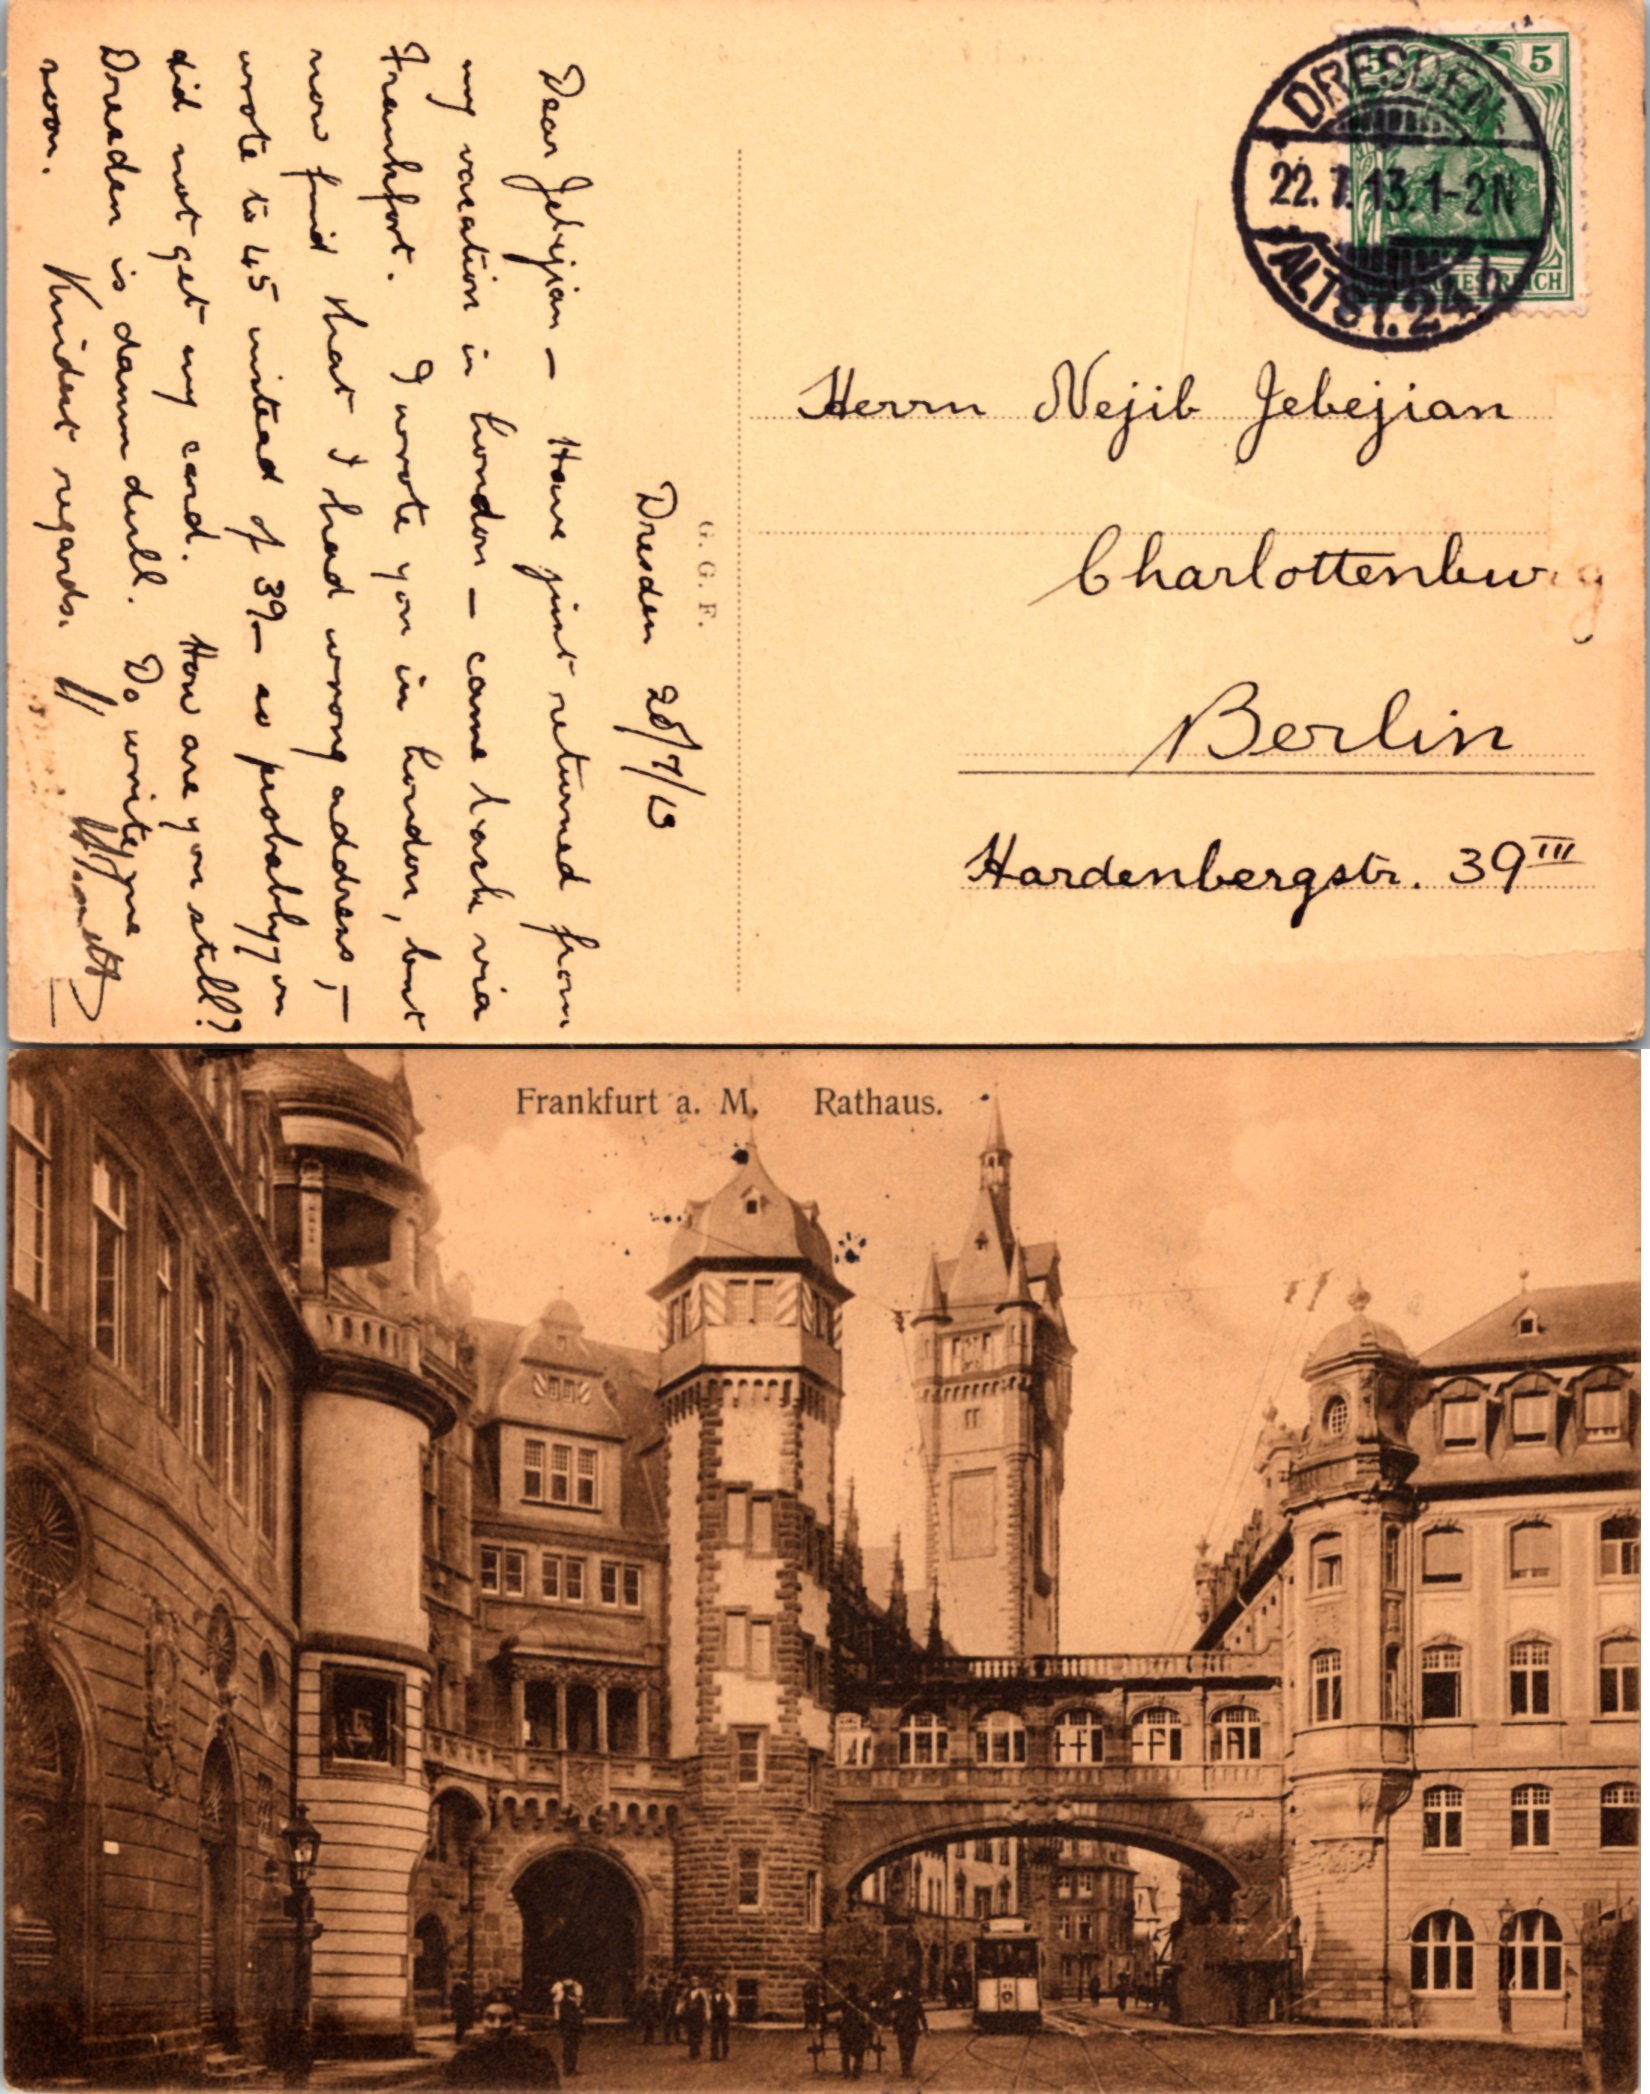 Dresden 20/7/13
Dear Jebejian – Have just returned from
my vacation in London – came back via
Frankfort. I wrote you in London, but
now find that I had wrong address, –
wrote to 45 instead of 39 – so probably you
did not get my card. How are you still?
Dresden is damn dull. Do write me
soon. Kindest regards.
G. G. F.
DRESDEN
22.7.13.1-2N
ALTST. 24 h
5 5
DEUTSCHES REICH
Herrn Nejib Jebejian
Charlottenburg
Berlin
Hardenbergstr. 39 III
Frankfurt a. M. Rathaus.